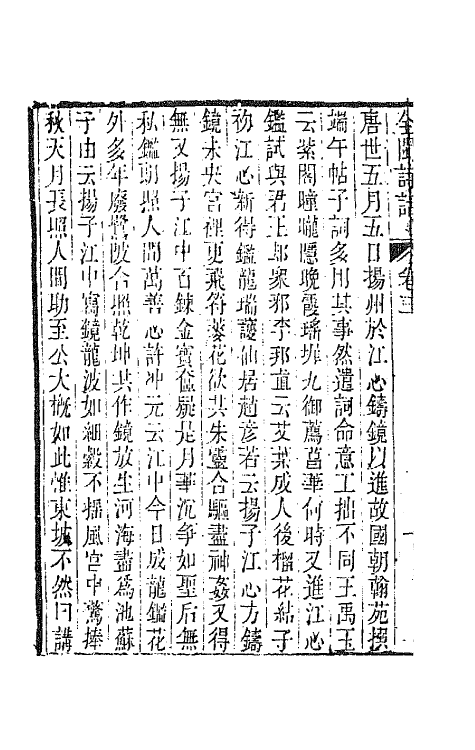 全閩詩話 卷三
唐世五月五日揚州於江心鑄鏡以進故國朝翰苑撰
端午帖子詞多用其事然遣詞命意工拙不同王禹玉
云紫閣曈曨隱晚霞瑶墀九御薦菖華何時又進江心
鑑試與君王却衆邪李邦直云艾葉成人後榴花結子
初江心新得鑑龍瑞護仙居趙彦若云揚子江心方鑄
鏡未央宮裡更飛符菱花欲共朱靈合驅盡神姦又得
無又揚子江中百鍊金寶奩疑是月華沉争如聖后無
私鑑朗照人間萬善心許冲元云江中今日成龍鑑花
外多年廢鷺陂合照乾坤共作鏡放生河海盡爲池蘇
子由云揚子江中寫鏡龍波如細縠不摇風宫中驚捧
秋天月長照人間助至公大概如此惟東坡不然曰講